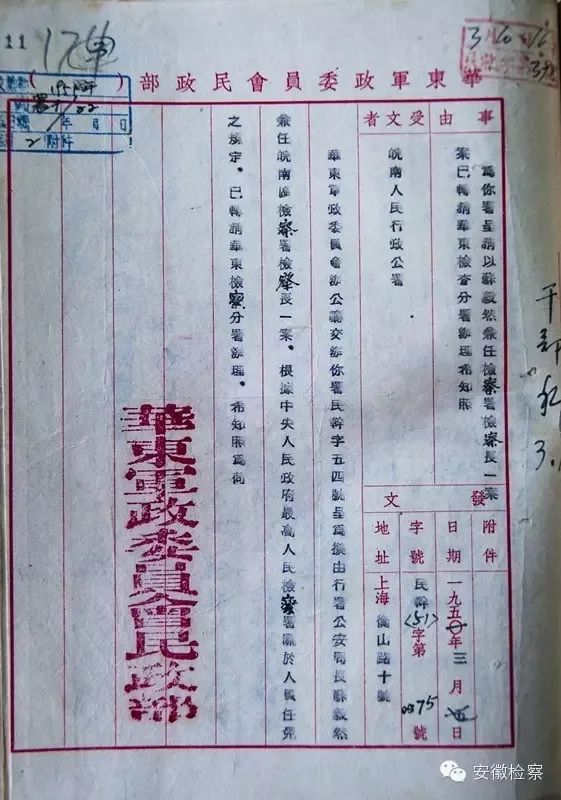 華東軍政委員會民政部（ ）
事由
為你署呈請以蘇毅然兼任檢察署檢察長一案
案已轉請華東檢查分署辦理希知照
受文者
皖南人民行政公署
發文
附件
日期 一九五〇年三月 日
字號 民幹(51)字第 75 號
地址 上海衡山路十號
華東軍政委員會辦公廳交辦你署民幹字五四號呈為擬由行署公安局長蘇毅然
兼任皖南區檢察署檢察長一案、根據中央人民政府最高人民檢察署關於人員任免
之規定、已轉請華東檢察分署辦理、希知照為荷
華東軍政委員會民政部
11
年 月 日
2 附件
3.
安徽检察